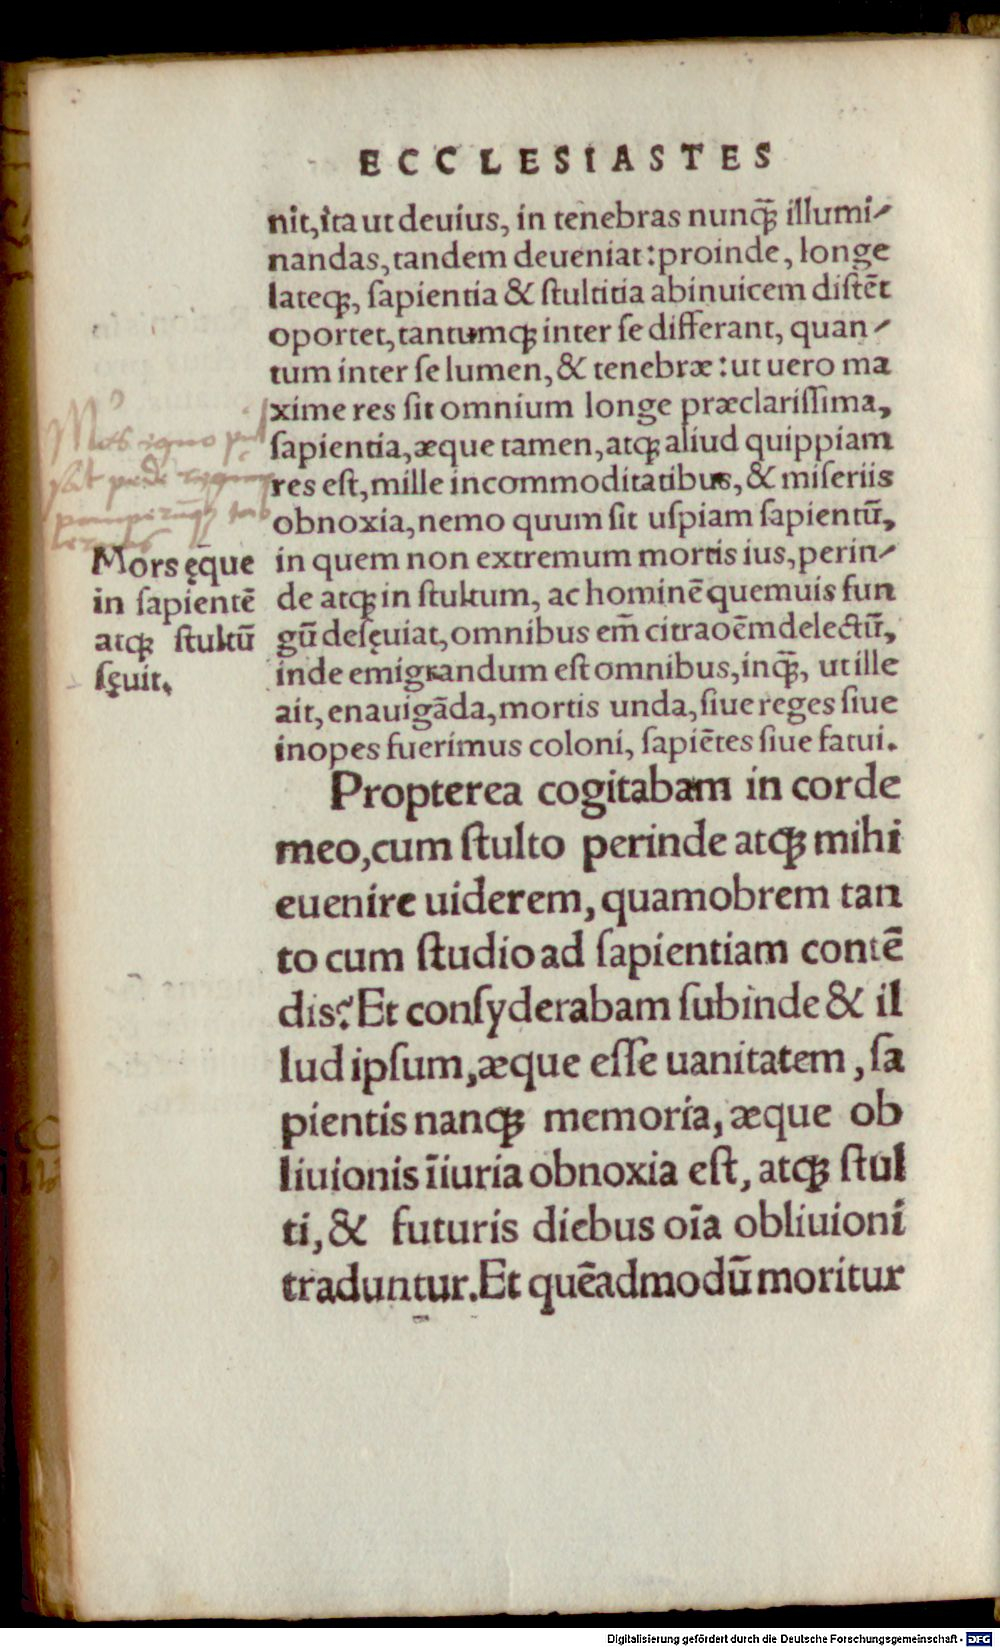 ECCLESIASTES
nit, ita ut deuius, in tenebras nunq̃ illumi-
nandas, tandem deueniat: proinde, longe
lateq;, sapientia & stultitia abinuicem distēt
oportet, tantumq; inter se differant, quan-
tum inter se lumen, & tenebræ: ut uero ma
xime res sit omnium longe præclarissima,
sapientia, æque tamen, atq; aliud quippiam
res est, mille incommoditatibus, & miseriis
obnoxia, nemo quum sit uspiam sapientū,
in quem non extremum mortis ius, perin-
de atq; in stultum, ac hominē quemuis fun
gū desęuiat, omnibus em̄ citra oēm delectū,
inde emigrandum est omnibus, inq̃, ut ille
ait, enauigāda, mortis unda, siue reges siue
inopes fuerimus coloni, sapiētes siue fatui.
Mors ęque
in sapientē
atq; stultū
sęuit.
Propterea cogitabam in corde
meo, cum stulto perinde atq; mihi
euenire uiderem, quamobrem tan
to cum studio ad sapientiam contē
dis? Et consyderabam subinde & il
lud ipsum, æque esse uanitatem, sa
pientis nanq; memoria, æque ob
liuionis īiuria obnoxia est, atq; stul
ti, & futuris diebus oīa obliuioni
traduntur. Et quēadmodū moritur
Digitalisierung gefördert durch die Deutsche Forschungsgemeinschaft - DFG